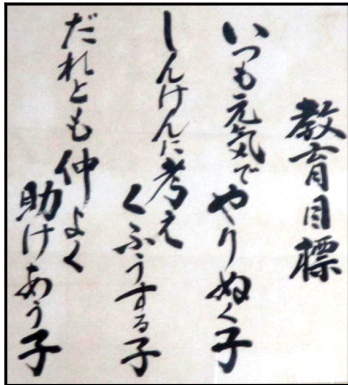 教育目標
いつも元気でやりぬく子
しんけんに考えくふうする子
だれとも仲よく助けあう子